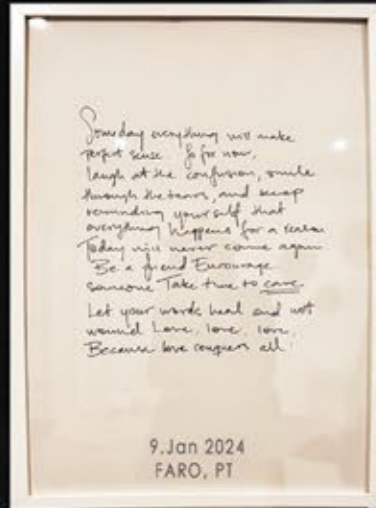 Someday everything will make
perfect sense. So for now,
laugh at the confusion, smile
through the tears, and keep
reminding yourself that
everything happens for a reason
Today will never come again
Be a friend Encourage
someone Take time to care.
Let your words heal and not
wound Love, love, love.
Because love conquers all!
9.Jan 2024
FARO, PT